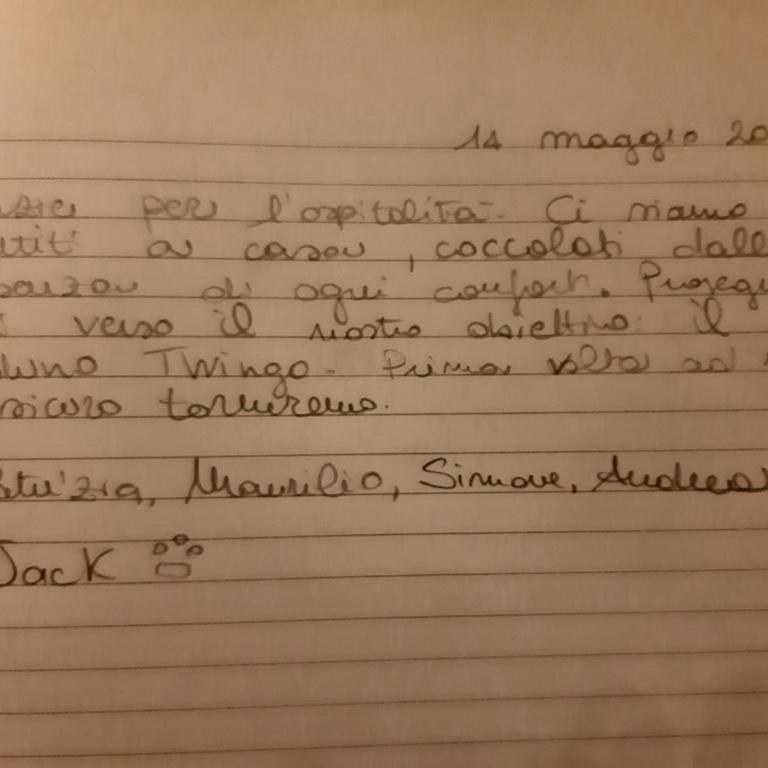 14 maggio 20
per l'ospitalità. Ci siamo
a casa, coccolati dall
di ogni comfort. Prosegu
verso il nostro obiettivo: il
Twingo. Prima volta ad
sicuro torneremo.
Maurilio, Simone, Andrea
Jack